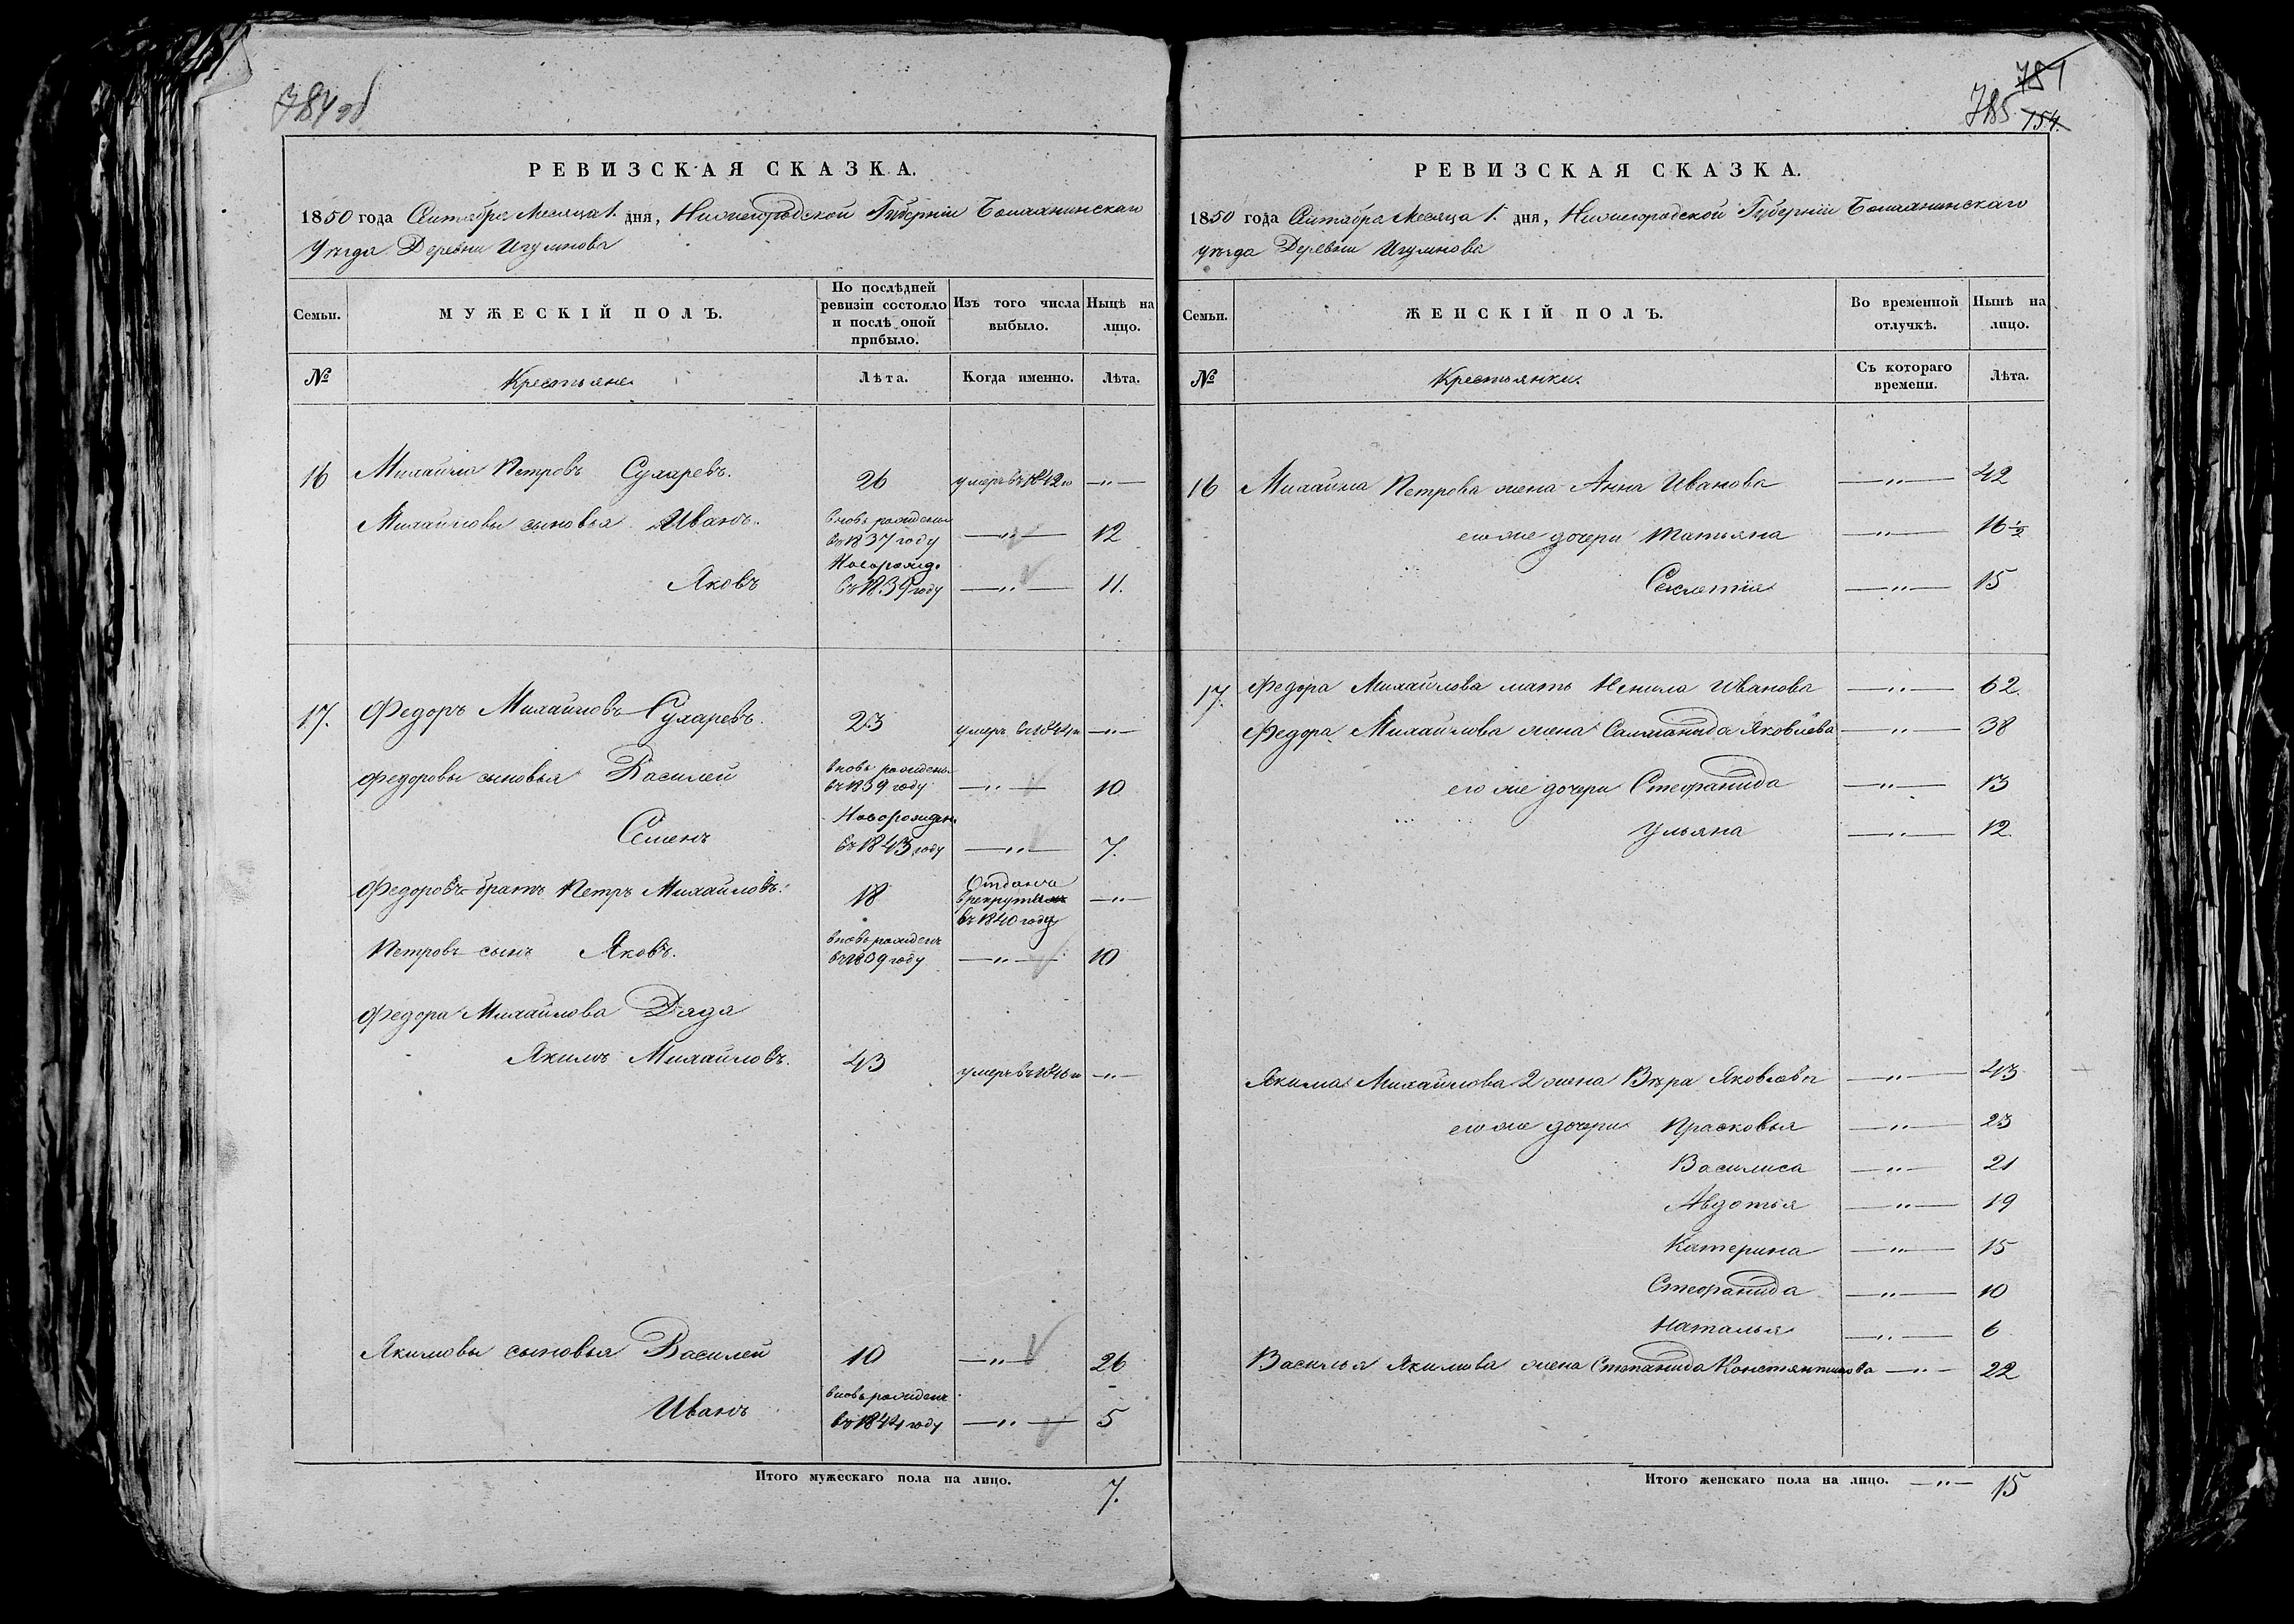 784 об
РЕВИЗСКАЯ СКАЗКА.
1850 года Сентября Месяца 1. дня, Нижегородской Губерніи Балахнинскаго
Уѣзда Деревни Игумнова
Семьи.
МУЖЕСКІЙ ПОЛЪ.
По послѣдней ревизіи состояло и послѣ оной прибыло.
Изъ того числа выбыло.
Нынѣ на лицо.
№
Крестьяне
Лѣта.
Когда именно.
Лѣта.
16 Михайла Петровъ Сухаревъ. 26 умеръ въ 1842 го —"—
Михайловы сыновья Иванъ. вновь рожденъ въ 1837 году —"— 12
Яковъ Новорожд. въ 1839 году —"— 11.
17. Федоръ Михайловъ Сухаревъ. 23 умеръ въ 1844 го —"—
Федоровы сыновья Василей вновь рожденъ въ 1839 году —"— 10
Семенъ Новорожден. въ 1843 году —"— 7.
Федоровъ братъ Петръ Михайловъ. 18 Отданъ в рекруты въ 1840 году —"—
Петровъ сынъ Яковъ. вновь рожденъ въ 1839 году —"— 10
Федора Михайлова Дядя
Якимъ Михайловъ. 43 умеръ въ 1846 го —"—
Якимовы сыновья Василей 10 —"— 26
Иванъ вновь рожденъ въ 1844 году —"— 5
Итого мужескаго пола на лицо. 7.
781
785
154.
РЕВИЗСКАЯ СКАЗКА.
1850 года Сентября Месяца 1. дня, Нижегородской Губерніи Балахнинскаго
уѣзда Деревни Игумнова
Семьи.
ЖЕНСКІЙ ПОЛЪ.
Во временной отлучкѣ.
Нынѣ на лицо.
№
Крестьянки.
Съ котораго времени.
Лѣта.
16 Михайла Петрова жена Анна Иванова —"— 42
его же дочери Татьяна —"— 16 ½
Секлетія —"— 15
17. Федора Михайлова мать Ненила Иванова —"— 62.
Федора Михайлова жена Саломанида Яковлева —"— 38
его же дочери Стефанида —"— 13
Ульяна —"— 12.
Якима Михайлова 2 жена Вѣра Яковлева —"— 43
его же дочери Прасковья —"— 23
Василиса —"— 21
Авдотья —"— 19
Катерина —"— 15
Стефанида —"— 10
Наталья —"— 6
Василья Якимова жена Степанида Константинова —"— 22
Итого женскаго пола на лицо. —"— 15